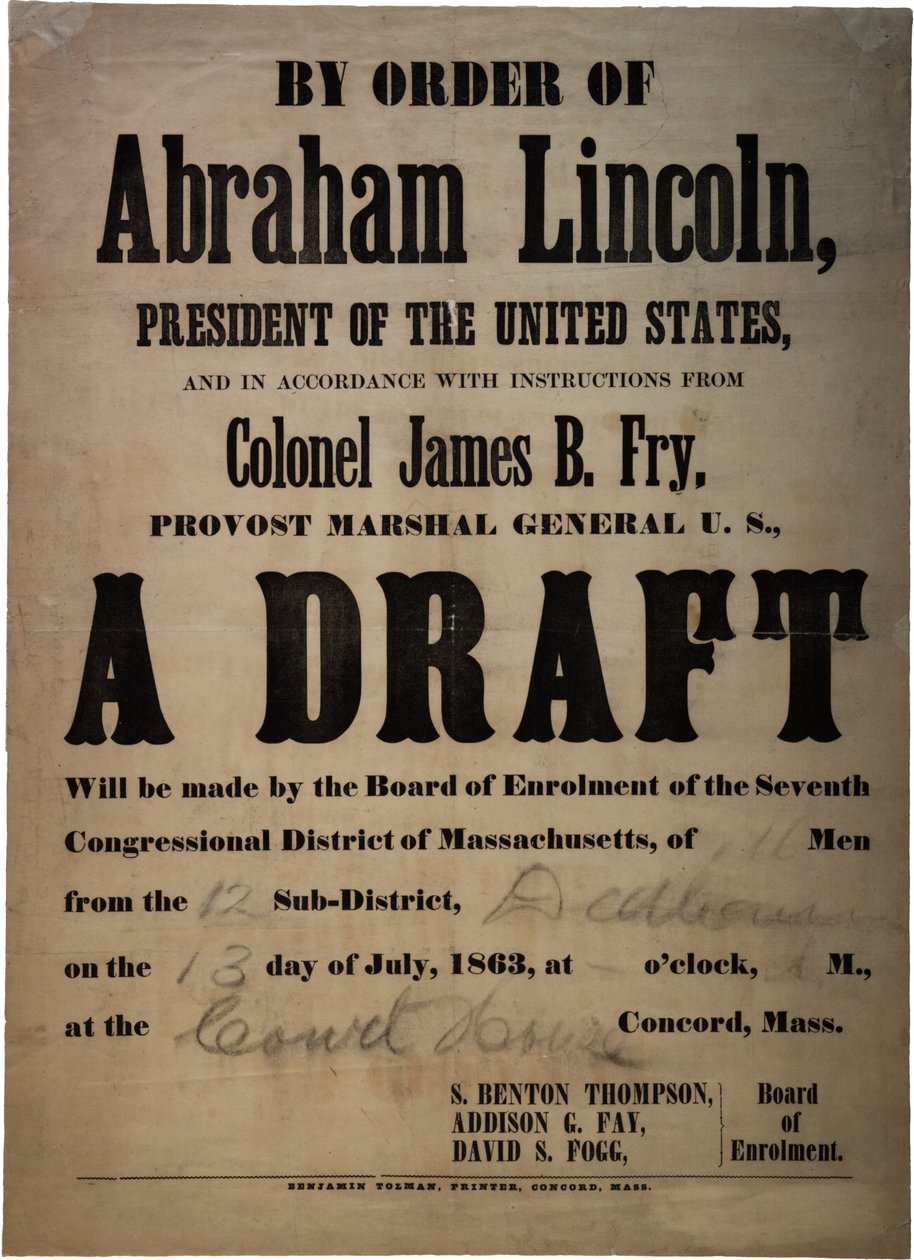 BY ORDER OF
Abraham Lincoln,
PRESIDENT OF THE UNITED STATES,
AND IN ACCORDANCE WITH INSTRUCTIONS FROM
Colonel James B. Fry,
PROVOST MARSHAL GENERAL U. S.,
A DRAFT
Will be made by the Board of Enrolment of the Seventh
Congressional District of Massachusetts, of Men
from the 12 Sub-District, Dedham
on the 13 day of July, 1863, at o'clock, M.,
at the Court House Concord, Mass.
S. BENTON THOMPSON,
ADDISON G. FAY,
DAVID S. FOGG,
Board
of
Enrolment.
BENJAMIN TOLMAN, PRINTER, CONCORD, MASS.